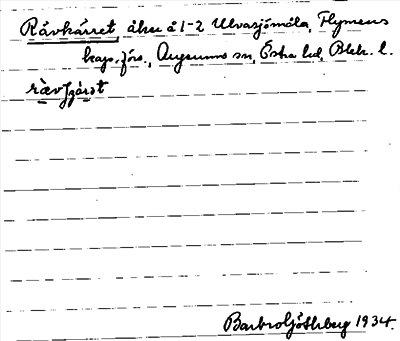 Råvkärret, åker å 1-2 Ulvasjömåla, Flymens
kap. förs., Augerums sn, Östra hd, Blek. l.
Barbro Sjöthberg 1934.